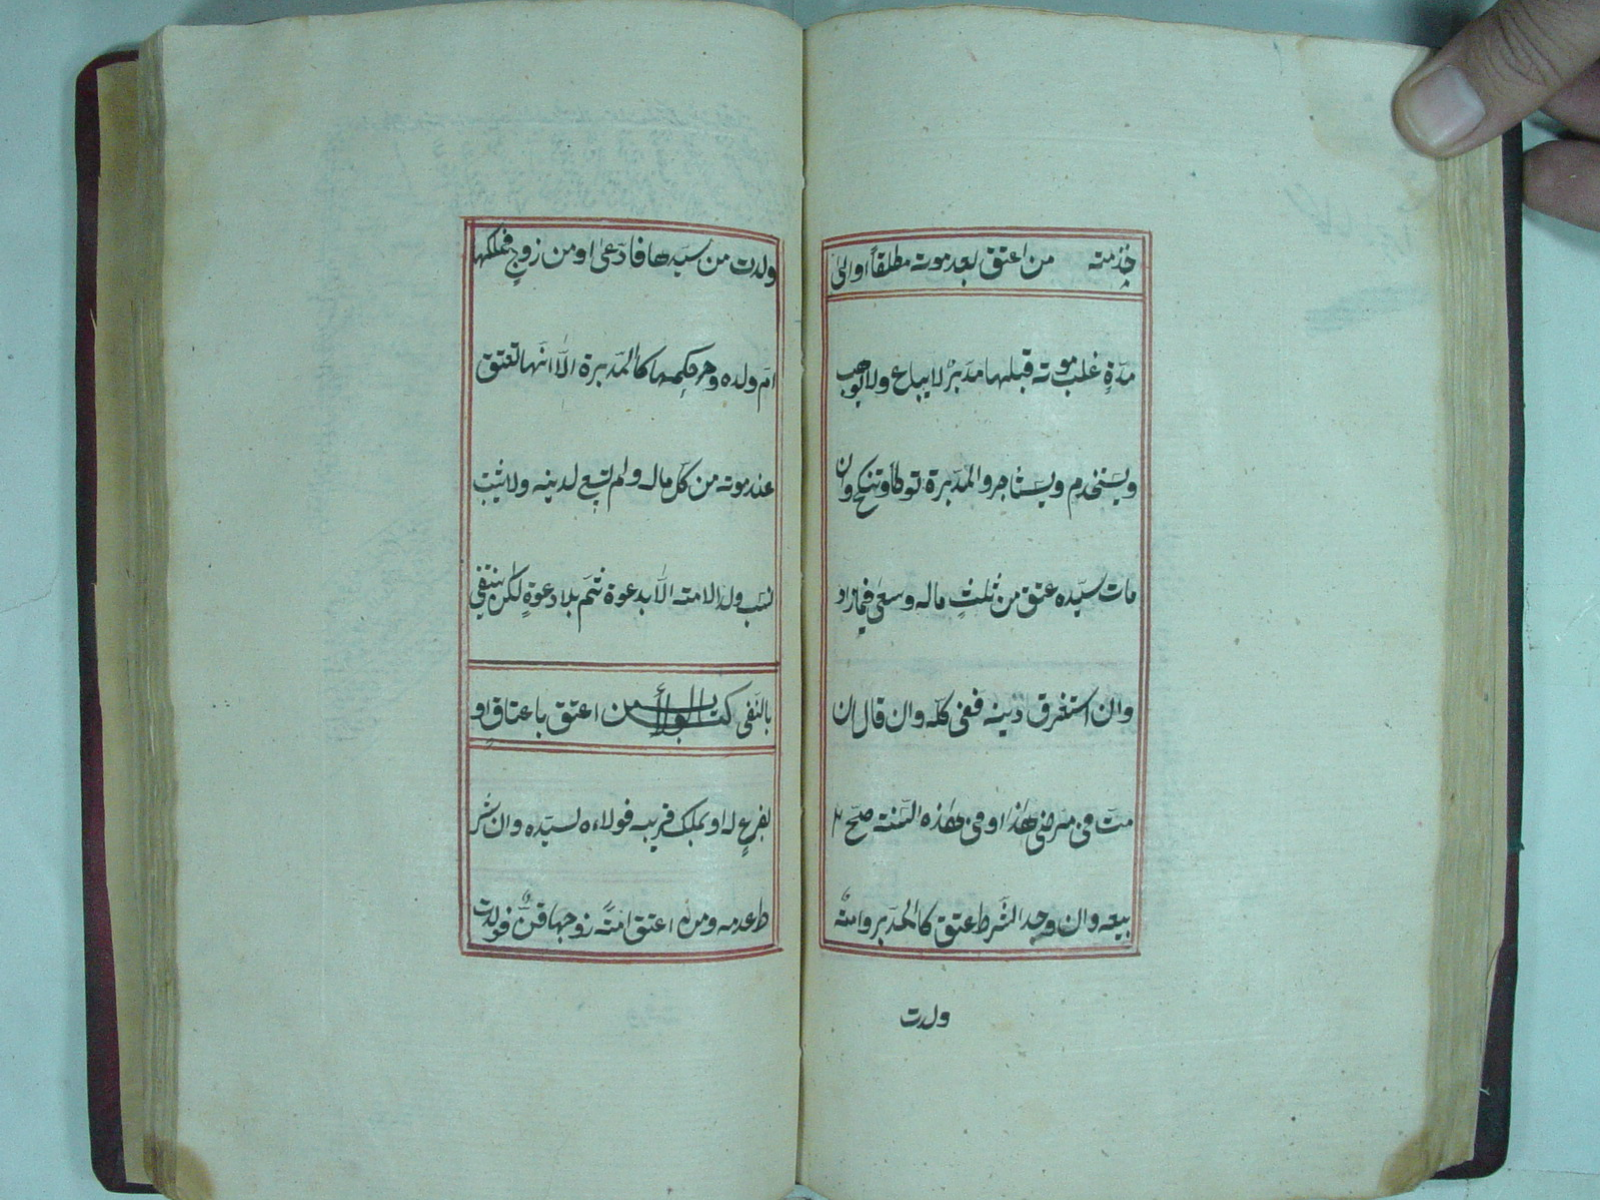 خدمته من اعتق بعد موته مطلقاً او الى
مدّةٍ غلب موته قبلها مدبّرٌ لا يباع ولا يوهب
ويستخدم ويستاجر والمدبّرة توطأ وتنكح وان
مات سيّده عتق من ثلث ماله وسعى فيما زاد
وان استغرق دينه ففى كلّه وان قال ان
متّ فى مرضى هذا او فى هذه السّنة صحّ
بيعه وان وجد الشّرط عتق كالمدبّر وامةٌ
ولدت
ولدت من سيّدها فادّعى او من زوجٍ فملكها
امّ ولده وحكمها كالمدّبرة الّا انّها تعتق
عند موته من كلّ ماله ولم تسع لدينه ولا يثبت
نسب ولد الامة الّا بدعوة ثمّ بلا دعوةٍ لكن ينتفى
بالنّفى كتاب الولاء من اعتق باعتاقٍ او
بفرعٍ له او بملك قريبه فولاءه لسيّده وان شر
ط عدمه ومن اعتق امةً زوجها قنٌّ فولدت